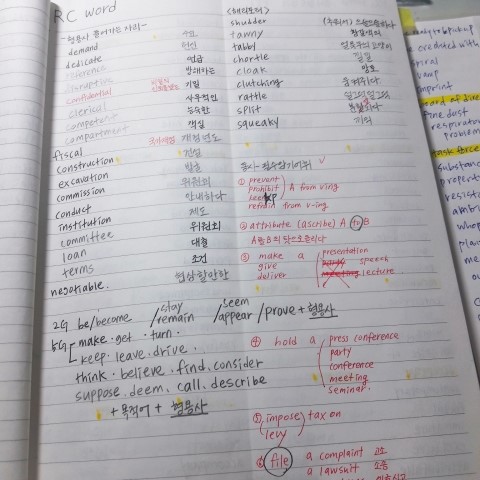 RC word
-형용사 들어가는 자리-
demand 수요
dedicate 헌신
reference 언급
disruptive 방해하는
confidential 기밀
clerical 사무적인
competent 능숙한
compartment 객실
fiscal 회계연도
construction 건설
excavation 발굴
commission 위원회
conduct 안내하다
institution 제도
committee 위원회
loan 대출
terms 조건
negotiable. 협상할만한
2G be/become /stay remain /seem appear /prove + 형용사
5G make · get · turn ·
keep · leave · drive ·
think · believe · find · consider
suppose · deem · call · describe
+ 목적어 + 형용사
<해리포터>
shudder
tawny 황갈색의
tabby 얼룩무늬 고양이
chortle 낄낄
cloak 망토
clutching 움켜쥐다
rattle
split
squeaky 끼익
동사-필수암기어휘
① prevent
prohibit A from ving
keep
refrain from v-ing
② attribute (ascribe) A to B
A를 B의 탓으로 돌리다
③ make a presentation
give party speech
deliver meeting lecture
④ hold a press conference
party
conference
meeting
seminar.
⑤ impose tax on
levy
⑥ file a complaint 고소
a lawsuit 소송
ready to pick up
a credited with
spiral
vamp
imprint
board of dire
fine dust
respiratory
problem
task force
substance
propert
resist
ambi
whop
plai
me
w